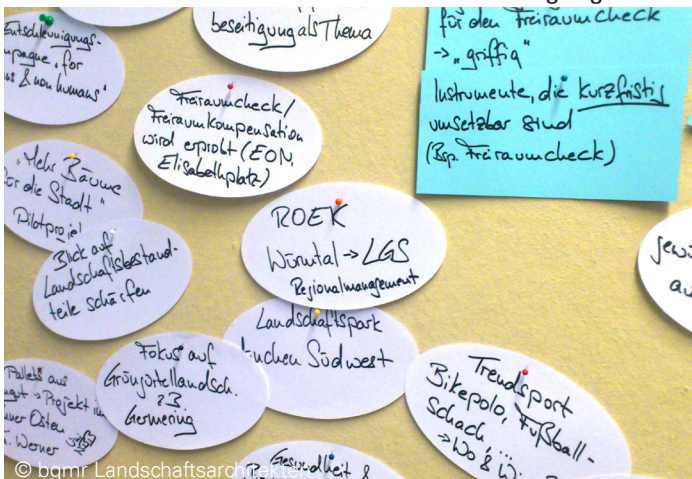 beseitigung als Thema
Entschleunigungs-
"for
& non humans"
für den Freiraumcheck
→ „griffig"
Instrumente, die kurzfristig
umsetzbar sind
(Bsp. Freiraumcheck)
Freiraumcheck/
Freiraumkompensation
wird erprobt (EON,
Elisabethplatz)
„Mehr Bäume
für die Stadt"
Pilotprojekt
Blick auf
Landschaftsbestand-
teile schärfen
ROEK
Würmtal → LGS
Regionalmanagement
Landschaftspark
Südwest
Fokus auf
Grüngürtellandsch.
z.B.
Germering
Pallets aus
→ Projekt im
Osten
Werner
Trendsport
Bikepolo, Fußball-
Schach, ...
→ Wo &
Gesundheit &
© bgmr Landschaftsarchitekten